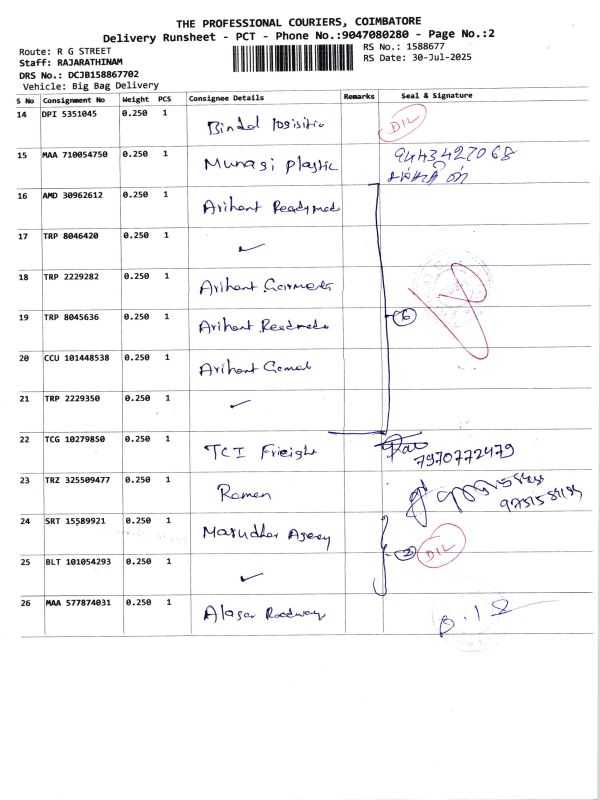 THE PROFESSIONAL COURIERS, COIMBATORE
Delivery Runsheet - PCT - Phone No.:9047080280 - Page No.:2
Route: R G STREET
RS No.: 1588677
Staff: RAJARATHINAM
RS Date: 30-Jul-2025
DRS No.: DCJB158867702
Vehicle: Big Bag Delivery
S No Consignment No Weight PCS Consignee Details Remarks Seal & Signature
14 DPI 5351045 0.250 1 Bindal DIL
15 MAA 710054750 0.250 1 Munasi Plastic 9443427068
16 AMD 30962612 0.250 1 Arihant Readymed
17 TRP 8046420 0.250 1 ✓
18 TRP 2229282 0.250 1 Arihant Garments
19 TRP 8045636 0.250 1 Arihant Reedmede 6
20 CCU 101448538 0.250 1 Arihant
21 TRP 2229350 0.250 1 ✓
22 TCG 10279850 0.250 1 TCI Freight 7970772479
23 TRZ 325509477 0.250 1 Ramen
24 SRT 15589921 0.250 1 Marudhar Agency 2 DIL
25 BLT 101054293 0.250 1 ✓
26 MAA 577874031 0.250 1 Alagar Roadways